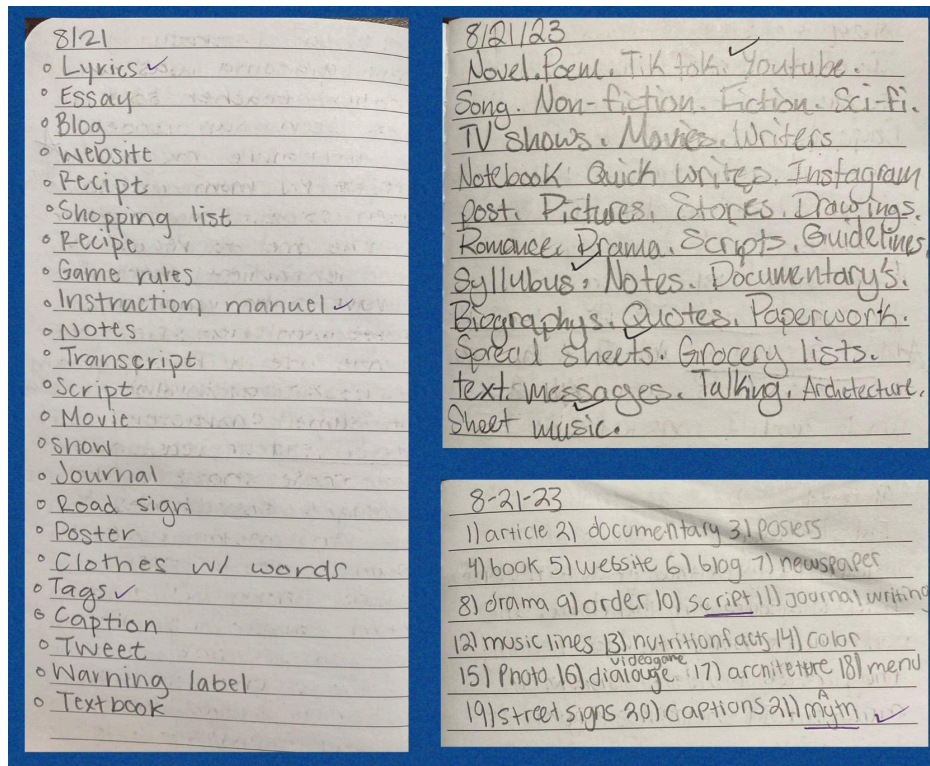 8/21
Lyrics
Essay
Blog
Website
Recipt
Shopping list
Recipe
Game rules
Instruction manuel
Notes
Transcript
Script
Movie
show
Journal
Road sign
Poster
Clothes w/ words
Tags
Caption
Tweet
Warning label
Textbook
8/21/23
Novel. Poem. Tik tok. Youtube.
Song. Non-fiction. Fiction. Sci-fi.
TV shows. Movies. Writers
Notebook Quick writes. Instagram
post. Pictures. Stories. Drawings.
Romance. Drama. Scripts. Guidelines.
Syllubus. Notes. Documentary's.
Biographys. Quotes. Paperwork.
Spread sheets. Grocery lists.
text messages. Talking. Architecture.
Sheet music.
8-21-23
1) article 2) documentary 3) posters
4) book 5) website 6) blog 7) newspaper
8) drama 9) order 10) script 11) journal writing
12) music lines 13) nutrition facts 14) color
15) Photo 16) videogame dialouge 17) architetture 18) menu
19) street signs 20) captions 21) myth